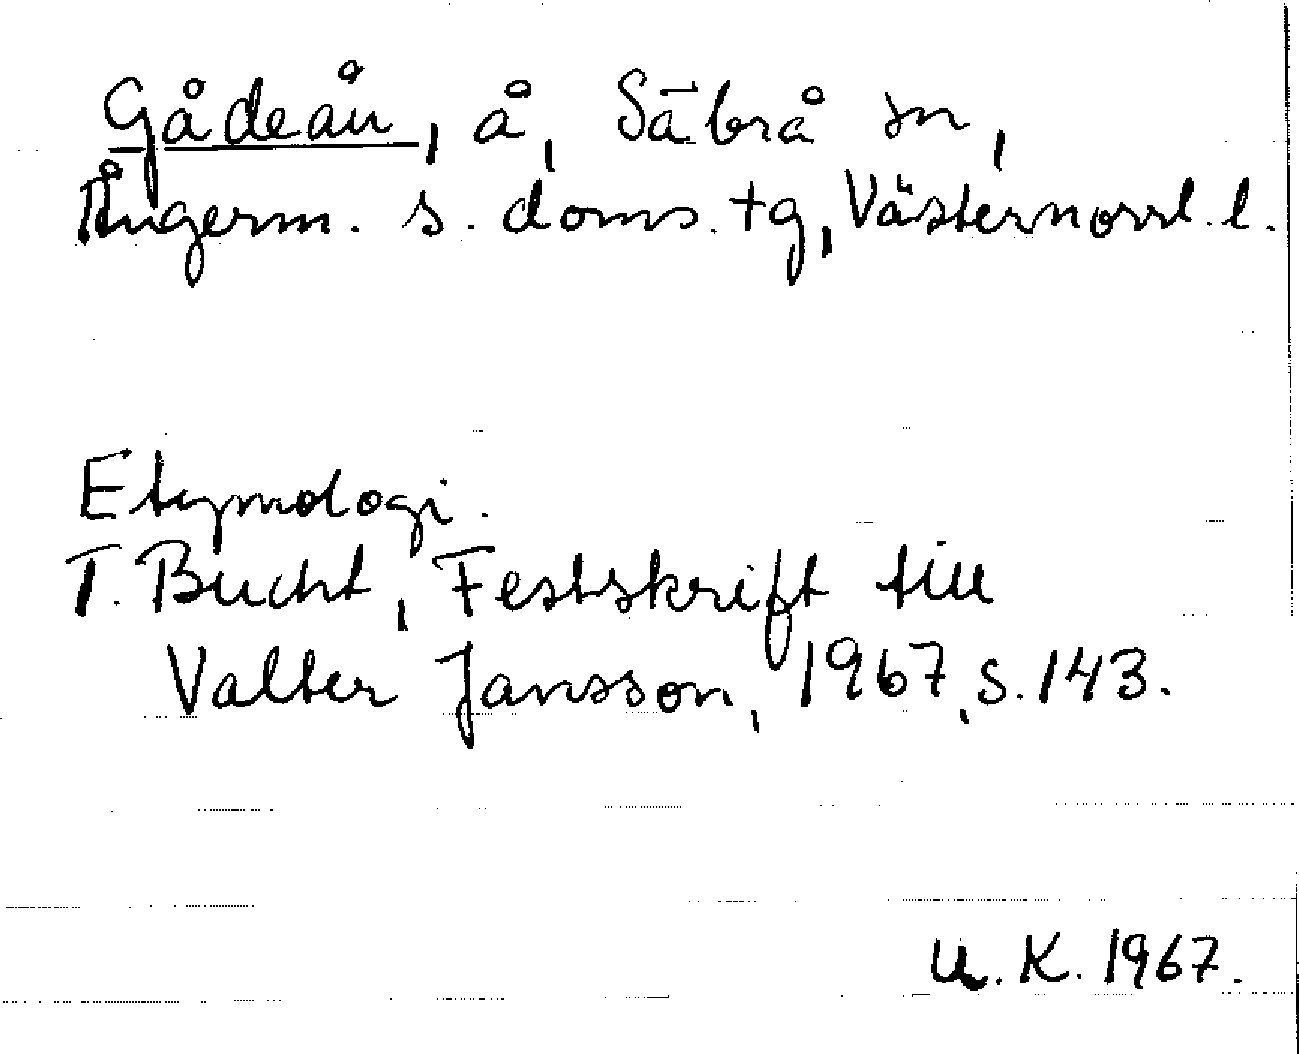 Gådeån, å, Säbrå sn,
Ångerm. s. doms. tg, Västernorrl. l.
Etymologi.
T. Bucht, Festskrift till
Valter Jansson, 1967, s. 143.
U. K. 1967.